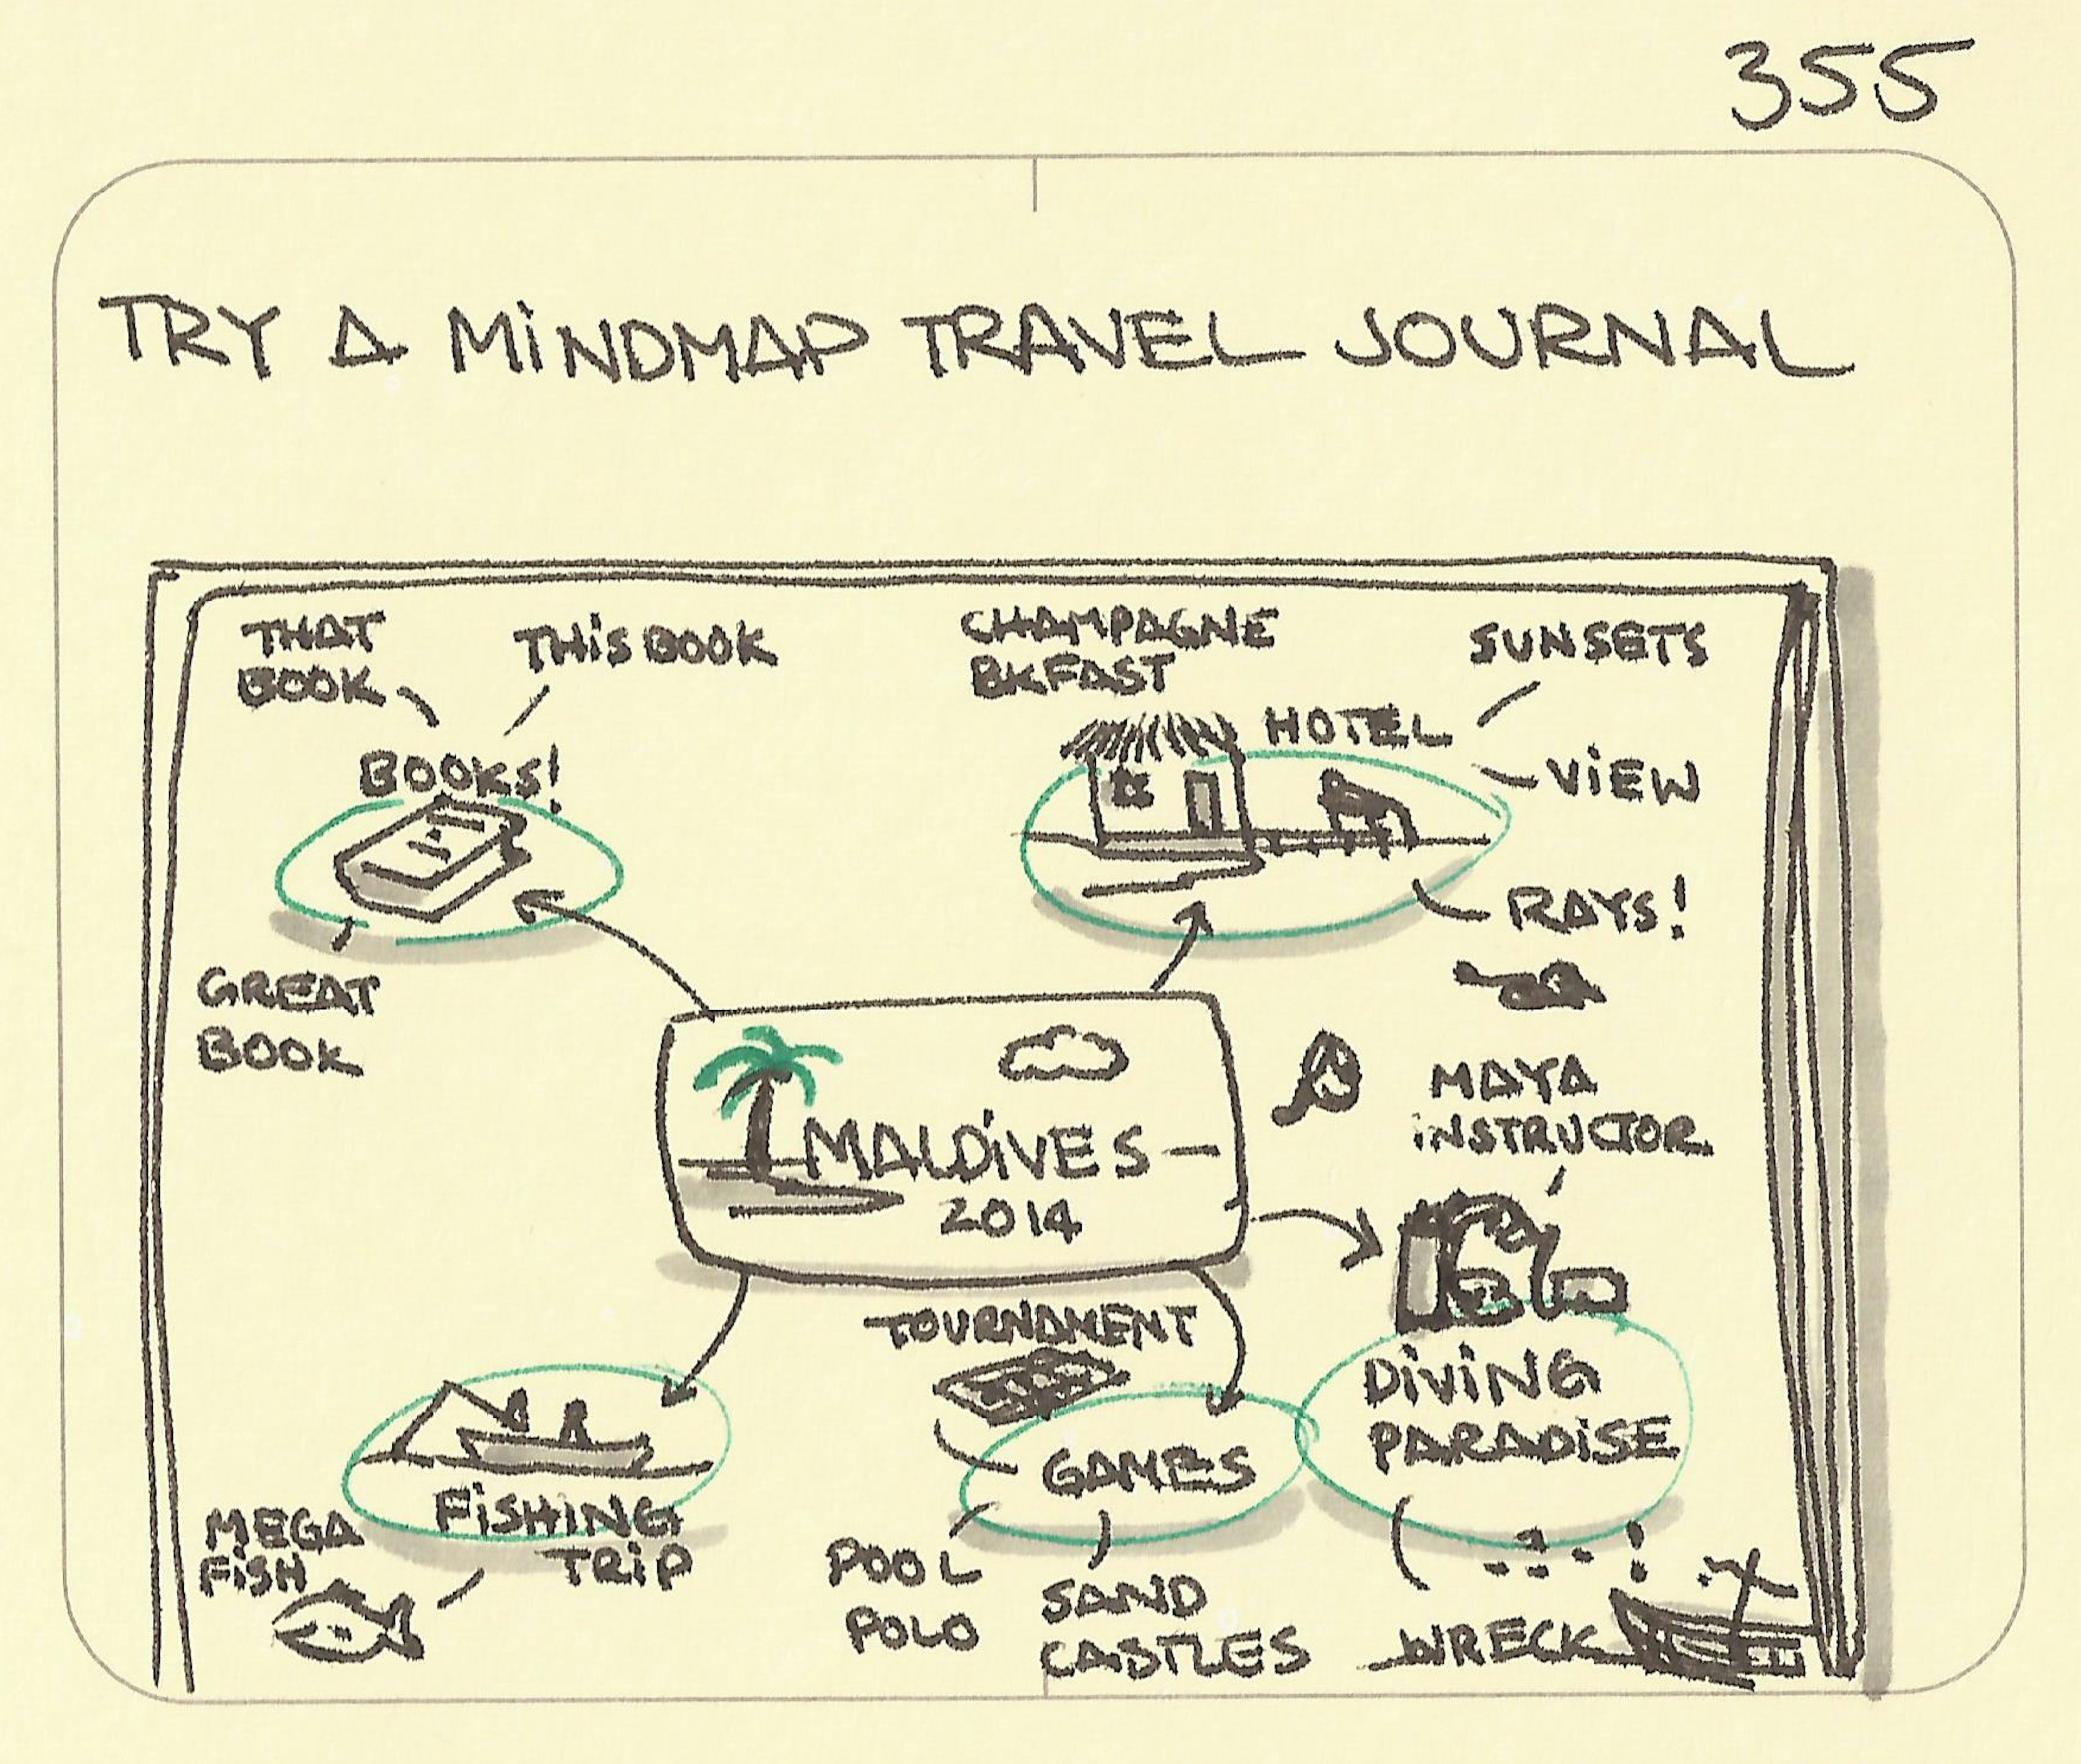 355
TRY A MINDMAP TRAVEL JOURNAL
THAT
BOOK
THIS BOOK
BOOKS!
GREAT
BOOK
CHAMPAGNE
BKFAST
HOTEL
SUNSETS
VIEW
RAYS!
MALDIVES
2014
MAYA
INSTRUCTOR
DIVING
PARADISE
WRECK
TOURNAMENT
GAMES
POOL
POLO
SAND
CASTLES
FISHING
TRIP
MEGA
FISH